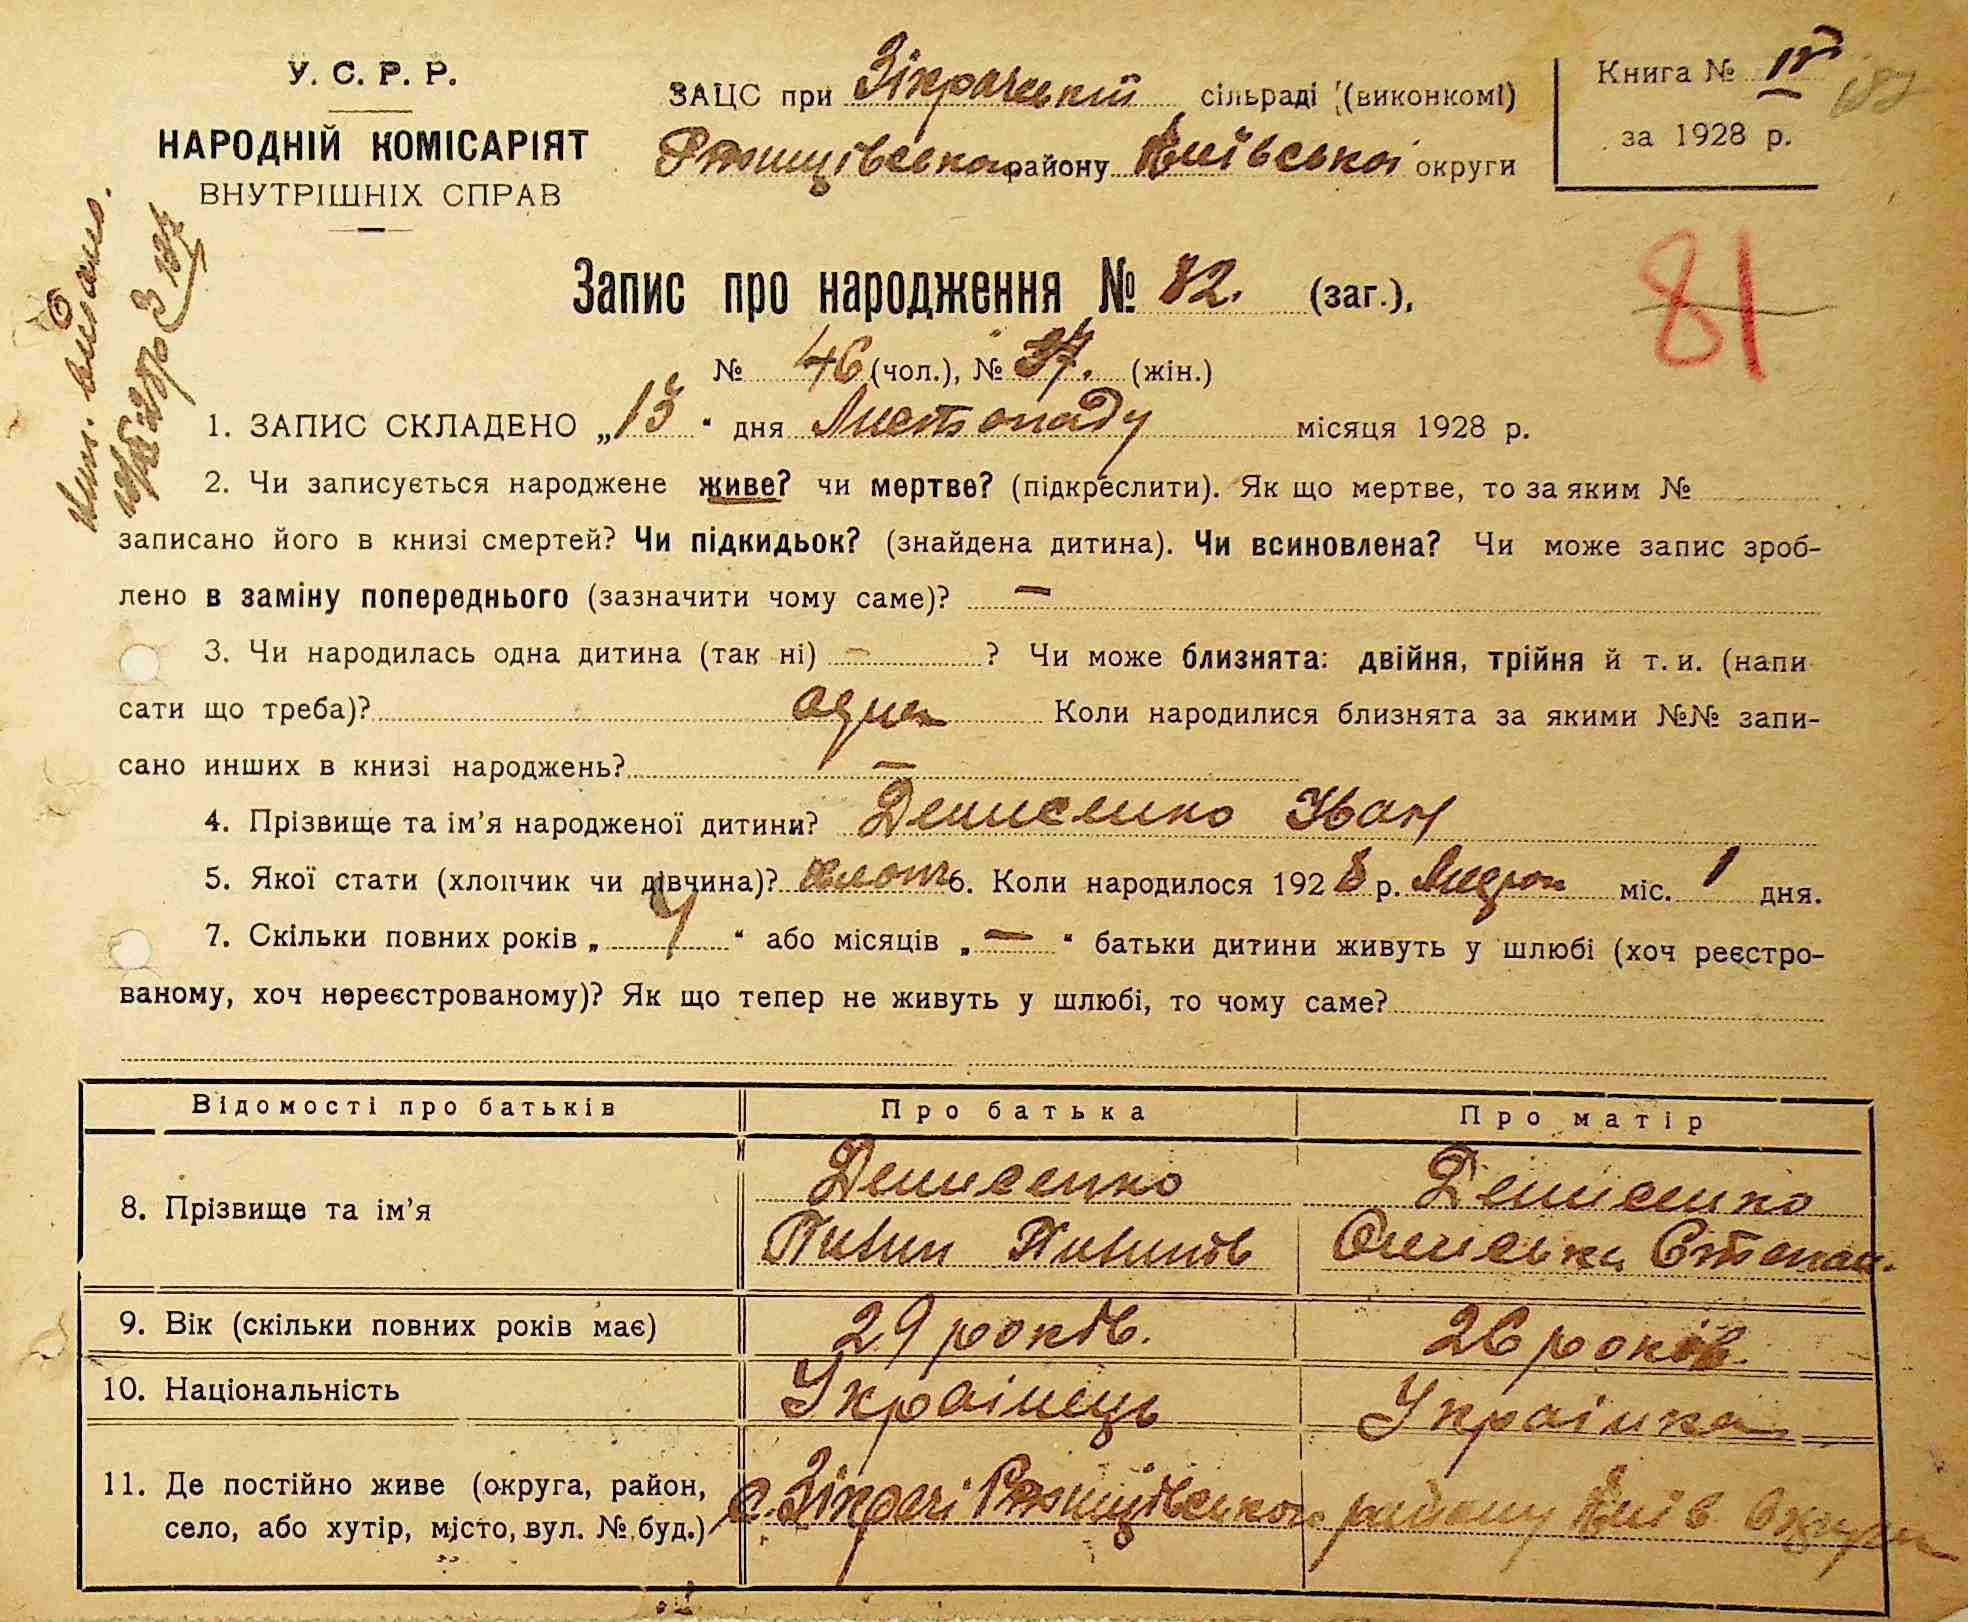 У. С. Р. Р.
НАРОДНІЙ КОМІСАРІЯТ
ВНУТРІШНІХ СПРАВ
ЗАЦС при Зікрачській сільраді (виконкомі)
Ржищівського району Київської округи
Книга №
за 1928 р.
81
Запис про народження № 82. (заг.),
№ 46 (чол.), № 37. (жін.)
1. ЗАПИС СКЛАДЕНО „13“ дня Листопаду місяця 1928 р.
2. Чи записується народжене живе? чи мертве? (підкреслити). Як що мертве, то за яким №
записано його в книзі смертей? Чи підкидьок? (знайдена дитина). Чи всиновлена? Чи може запис зроб-
лено в заміну попереднього (зазначити чому саме)? —
3. Чи народилась одна дитина (так ні) - ? Чи може близнята: двійня, трійня й т. и. (напи
сати що треба)? одна Коли народилися близнята за якими №№ запи-
сано инших в книзі народжень? —
4. Прізвище та ім’я народженої дитини? Денисенко Іван
5. Якої стати (хлопчик чи дівчина)? хлопч 6. Коли народилося 1928 р. міс. 1 дня.
7. Скільки повних років „ 4 “ або місяців „ — “ батьки дитини живуть у шлюбі (хоч реєстро-
ваному, хоч нереєстрованому)? Як що тепер не живуть у шлюбі, то чому саме?
Відомості про батьків Про батька Про матір
8. Прізвище та ім’я Денисенко Денисенко
Пивип Пивипів Ониська Степан.
9. Вік (скільки повних років має) 29 років. 26 років.
10. Національність Українець Українка
11. Де постійно живе (округа, район,
село, або хутір, місто, вул. № буд.) с. Зікрачі Ржищівського району Київ округи